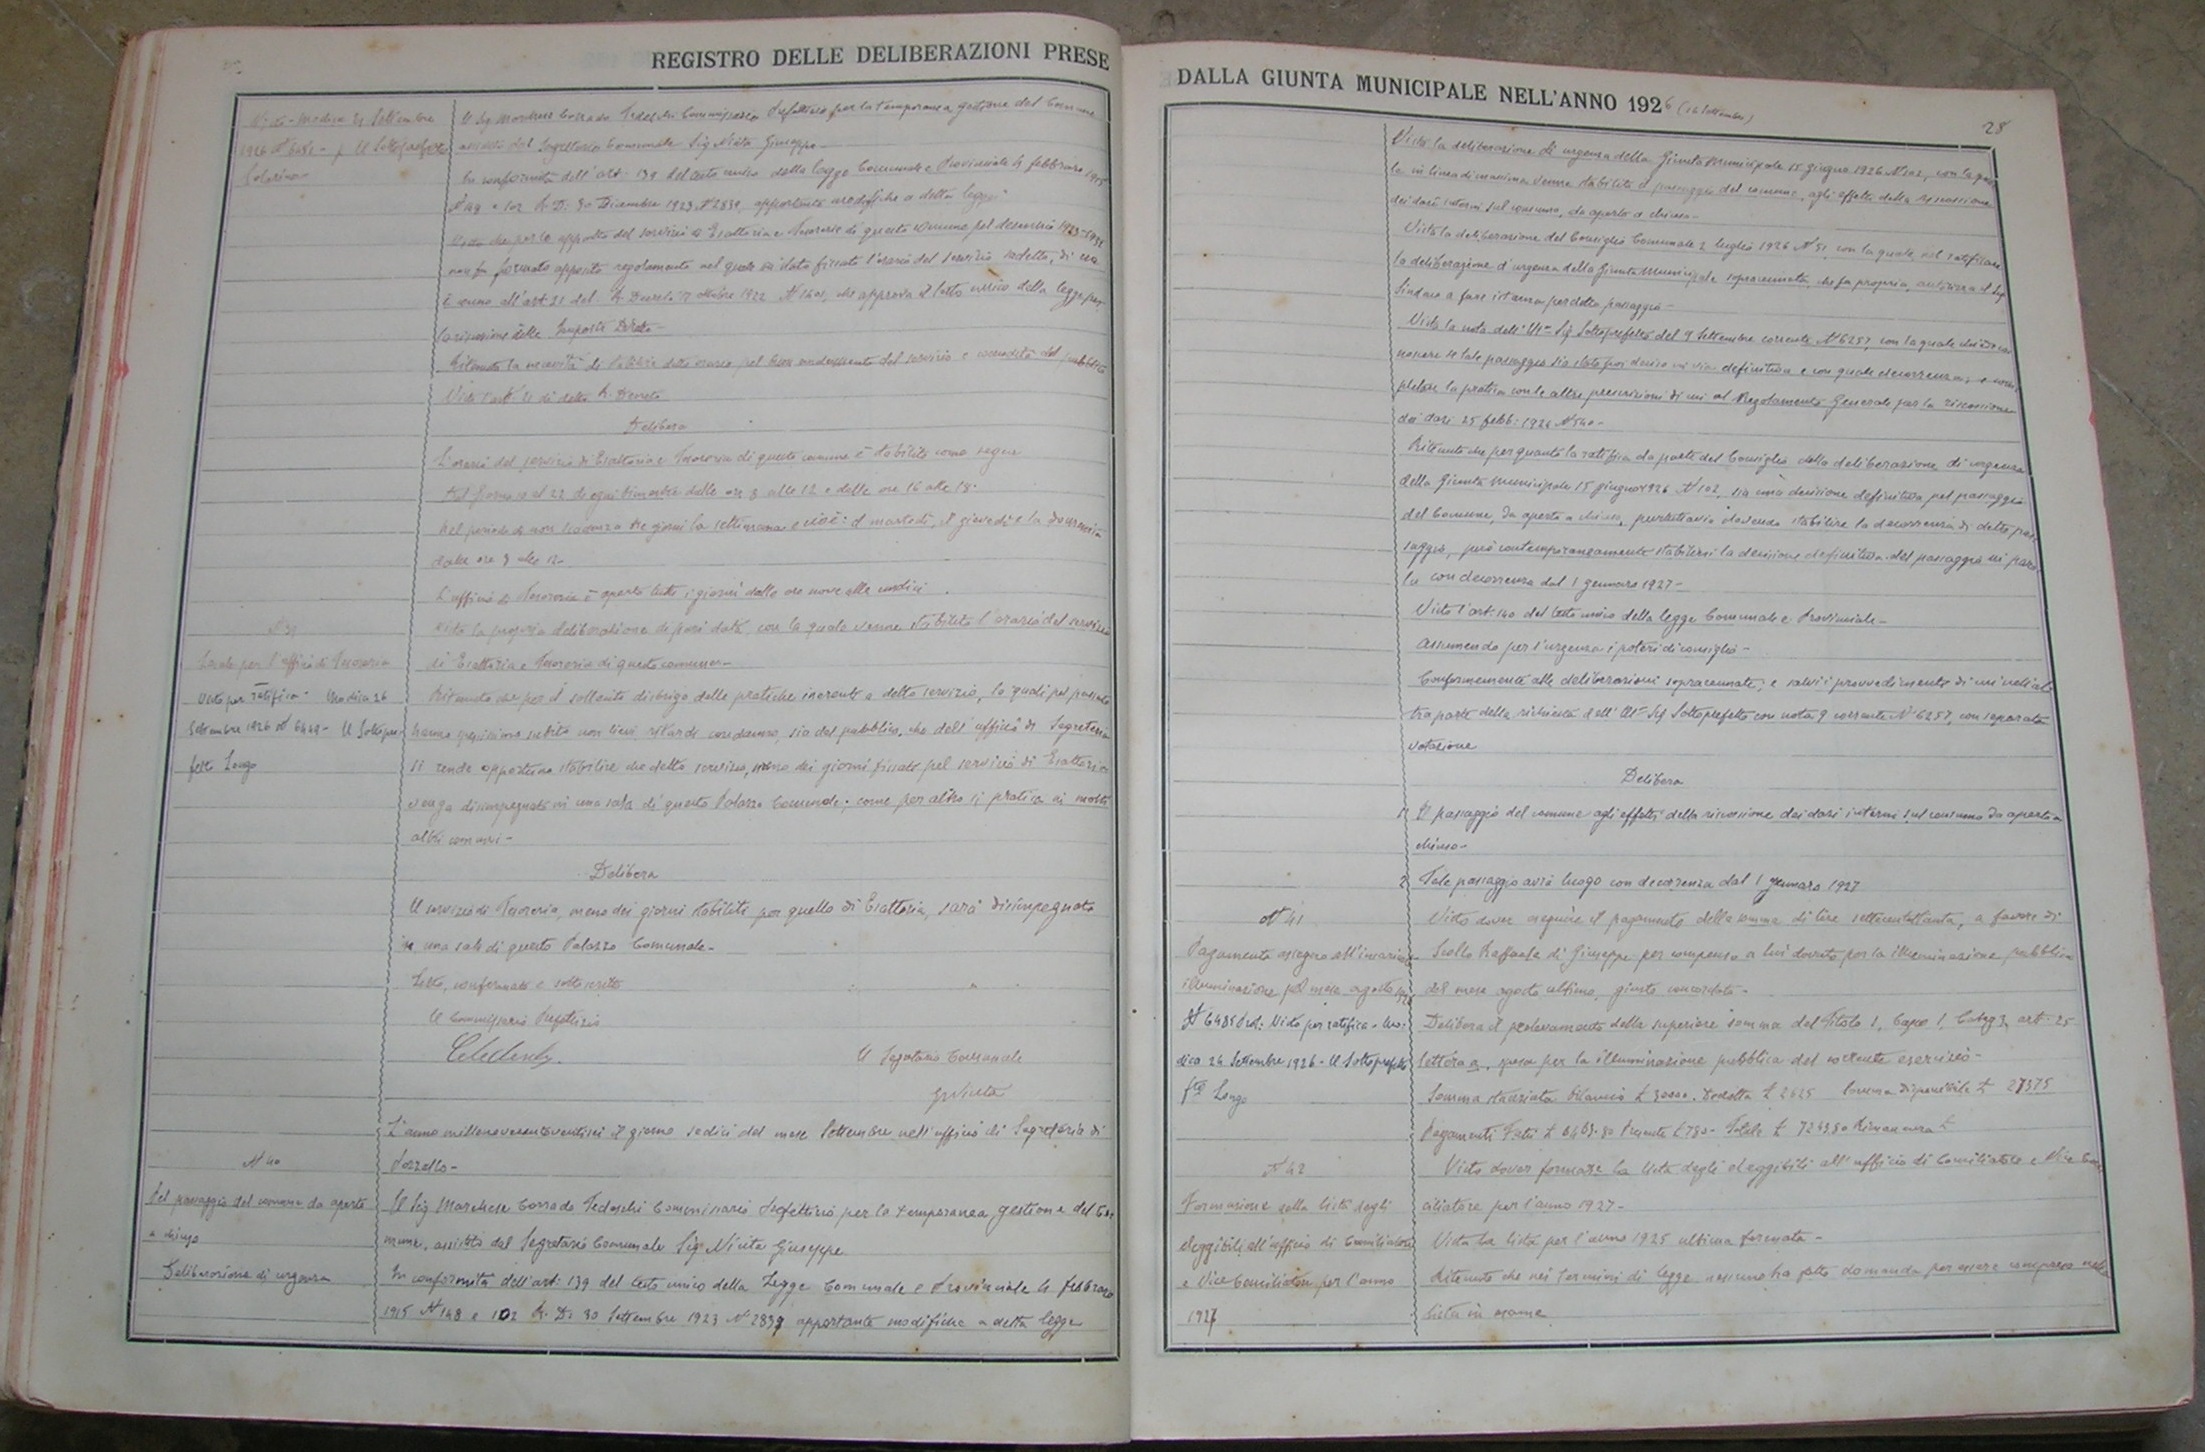 REGISTRO DELLE DELIBERAZIONI PRESE
Visto - Modica 21 Settembre
1926 N° - p. Il Sottoprefetto
Il Sig. Marchese Corrado Tedeschi Commissario Prefettizio per la temporanea gestione del Comune
assistito dal Segretario Comunale Sig. Nicita Giuseppe -
In conformità dell'art. 139 del testo unico della legge Comunale e Provinciale 4 febbraio 1915
N 148 e 102 R. D. 30 Dicembre 1923 N° 2839, apportante modifiche a detta legge
Visto che per lo appalto del servizio di Esattoria e Tesoreria di questo comune pel decennio 1923-1932
non fu formato apposito regolamento nel quale sia stato fissato l'orario del servizio sudetto, di cui
è cenno all'art. 21 del R. Decreto 17 ottobre 1922 N° 1401, che approva il testo unico della legge per
la riscossione delle Imposte Dirette -
Ritenuto la necessità di stabilire detto orario pel buon andamento del servizio e comodità del pubblico
Visto l'art. 21 di detto R. Decreto
Delibera
L'orario del servizio di Esattoria e Tesoreria di questo comune è stabilito come segue
Dal giorno 10 al 22 di ogni bimestre dalle ore 8 alle 12 e dalle ore 16 alle 18.
Nel periodo di non scadenza tre giorni la settimana e cioè: il martedì, il giovedì e la domenica
dalle ore 8 alle 12.
L'ufficio di Tesoreria è aperto tutti i giorni dalle ore nove alle undici.
N 39
Locale per l'ufficio di Tesoreria
Visto per ratifica - Modica 26
Settembre 1926 N° 6449 - Il Sottopre-
fetto Longo
Vista la propria deliberazione di pari data, con la quale venne stabilito l'orario del servizio
di Esattoria e Tesoreria di questo comune -
Ritenuto che per il sollecito disbrigo delle pratiche inerenti a detto servizio, le quali pel passato
hanno subito non lievi ritardi con danno, sia del pubblico, che dell'ufficio di Segreteria
si rende opportuno stabilire che detto servizio, meno dei giorni fissati pel servizio di Esattoria
venga disimpegnato in una sala di questo Palazzo Comunale, come per altro si pratica in molti
altri comuni -
Delibera
Il servizio di Tesoreria, meno dei giorni stabiliti per quello di Esattoria, sarà disimpegnato
in una sala di questo Palazzo Comunale -
Letto, confermato e sottoscritto
Il Commissario Prefettizio
Il Segretario Comunale
G Nicita
L'anno millenovecentoventisei il giorno sedici del mese Settembre nell'ufficio di Segreteria di
Pozzallo -
N° 40
Pel passaggio del comune da aperto
a chiuso
Deliberazione di urgenza
Il Sig Marchese Corrado Tedeschi Commissario Prefettizio per la temporanea gestione del Co-
mune, assistito dal Segretario Comunale Sig. Nicita Giuseppe
In conformità dell'art. 139 del testo unico della Legge Comunale e Provinciale 4 febbraio
1915 N° 148 e 102 R. D. 30 Settembre 1923 N° 2839 apportante modifiche a detta legge
DALLA GIUNTA MUNICIPALE NELL'ANNO 1926 (16 Settembre)
28
Vista la deliberazione di urgenza della Giunta Municipale 15 giugno 1926 N° 102, con la qua-
le in linea di massima venne stabilito il passaggio del comune, agli effetti della riscossione
dei dazi interni sul consumo, da aperto a chiuso -
Vista la deliberazione del Consiglio Comunale 2 luglio 1926 N° 51, con la quale, nel ratificare
la deliberazione d'urgenza della Giunta Municipale sopracennata, che fa propria, autorizza il Sig
Sindaco a fare istanza per detto passaggio -
Vista la nota dell'Ill.mo Sig Sottoprefetto del 9 Settembre corrente N° 6257, con la quale chiede co-
noscere se tale passaggio sia stato poi deciso in via definitiva e con quale decorrenza, e com-
pletare la pratica con le altre prescrizioni di cui al Regolamento Generale per la riscossione
dei dazi 25 febb. 1924 N° 540 -
Ritenuto che per quanto la ratifica da parte del Consiglio della deliberazione di urgenza
della Giunta Municipale 15 giugno 1926 N° 102, sia una decisione definitiva pel passaggio
del Comune, da aperto a chiuso, purtuttavia dovendo stabilire la decorrenza di detto pas-
saggio, può contemporaneamente stabilirsi la decisione definitiva del passaggio in paro-
la con decorrenza dal 1 gennaro 1927 -
Visto l'art. 140 del testo unico della legge Comunale e Provinciale -
Assumendo per l'urgenza i poteri di consiglio -
Conformemente alle deliberazioni sopracennate, e salvi i provvedimenti di cui nell'al-
tra parte della richiesta dell'Ill.mo Sig Sottoprefetto con nota 9 corrente N° 6257, con separata
votazione
Delibera
1° Il passaggio del comune agli effetti della riscossione dei dazi interni sul consumo da aperto a
chiuso -
2° Tale passaggio avrà luogo con decorrenza dal 1 gennaro 1927
N° 41
Pagamento assegno all'incaricato
illuminazione pel mese agosto 1926
N° 6485 Prot. Visto per ratifica - Mo-
dica 26 Settembre 1926 - Il Sottoprefetto
f.to Longo
Visto dover eseguire il pagamento della somma di lire settecentottanta, a favore di
Scollo Raffaele di Giuseppe per compenso a lui dovuto per la illuminazione pubblica
del mese agosto ultimo, giusto concordato -
Delibera il prelevamento della superiore somma del Titolo 1, Capo 1, Catg 3, art. 25
lettera a, spesa per la illuminazione pubblica del corrente esercizio -
Somma stanziata Bilancio £ 30000. Dedotta £ 2625 Somma disponibile £ 27375
Pagamenti Fatti £ 6463.80 Presente £ 780 - Totale £ 7243.80 Rimanenza £
N° 42
Formazione della lista degli
eleggibili all'ufficio di Conciliatore
e Vice Conciliatore per l'anno
1927
Visto dover formare la lista degli eleggibili all'ufficio di Conciliatore e Vice Con-
ciliatore per l'anno 1927 -
Vista la lista per l'anno 1925 ultima formata -
Ritenuto che nei termini di legge nessuno ha fatto domanda per essere compreso nella
lista in esame